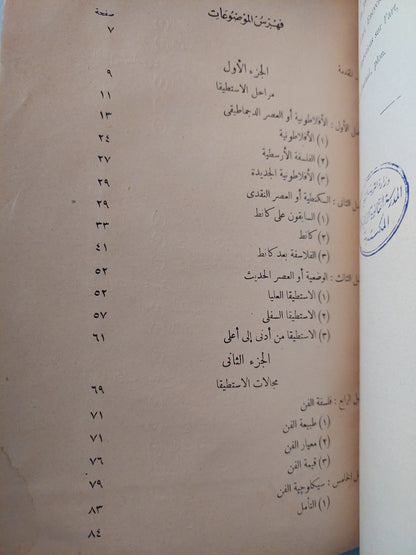 فهرس الموضوعات
صفحة
المقدمة ٧
الجزء الأول ٩
مراحل الاستطيقا ١١
الأول : الأفلاطونية أو العصر الدجماطيقي ١٣
(١) الأفلاطونية ٢٤
(٢) الفلسفة الأرسطية ٢٧
(٣) الأفلاطونية الجديدة ٢٩
الثانى : الكنطية أو العصر النقدى ٢٩
(١) السابقون على كانط ٣٣
(٢) كانط ٤١
(٣) الفلاسفة بعد كانط ٥٢
الثالث : الوضعية أو العصر الحديث ٥٢
(١) الاستطيقا العليا ٥٧
(٢) الاستطيقا السفلى ٦١
(٣) الاستطيقا من أدنى إلى أعلى
الجزء الثانى
مجالات الاستطيقا ٦٩
الرابع : فلسفة الفن ٧١
(١) طبيعة الفن ٧١
(٢) معيار الفن ٧٦
(٣) قيمة الفن ٧٩
الخامس : سيكلوجية الفن ٨٣
(١) التأمل ٨٤
sur l'art,